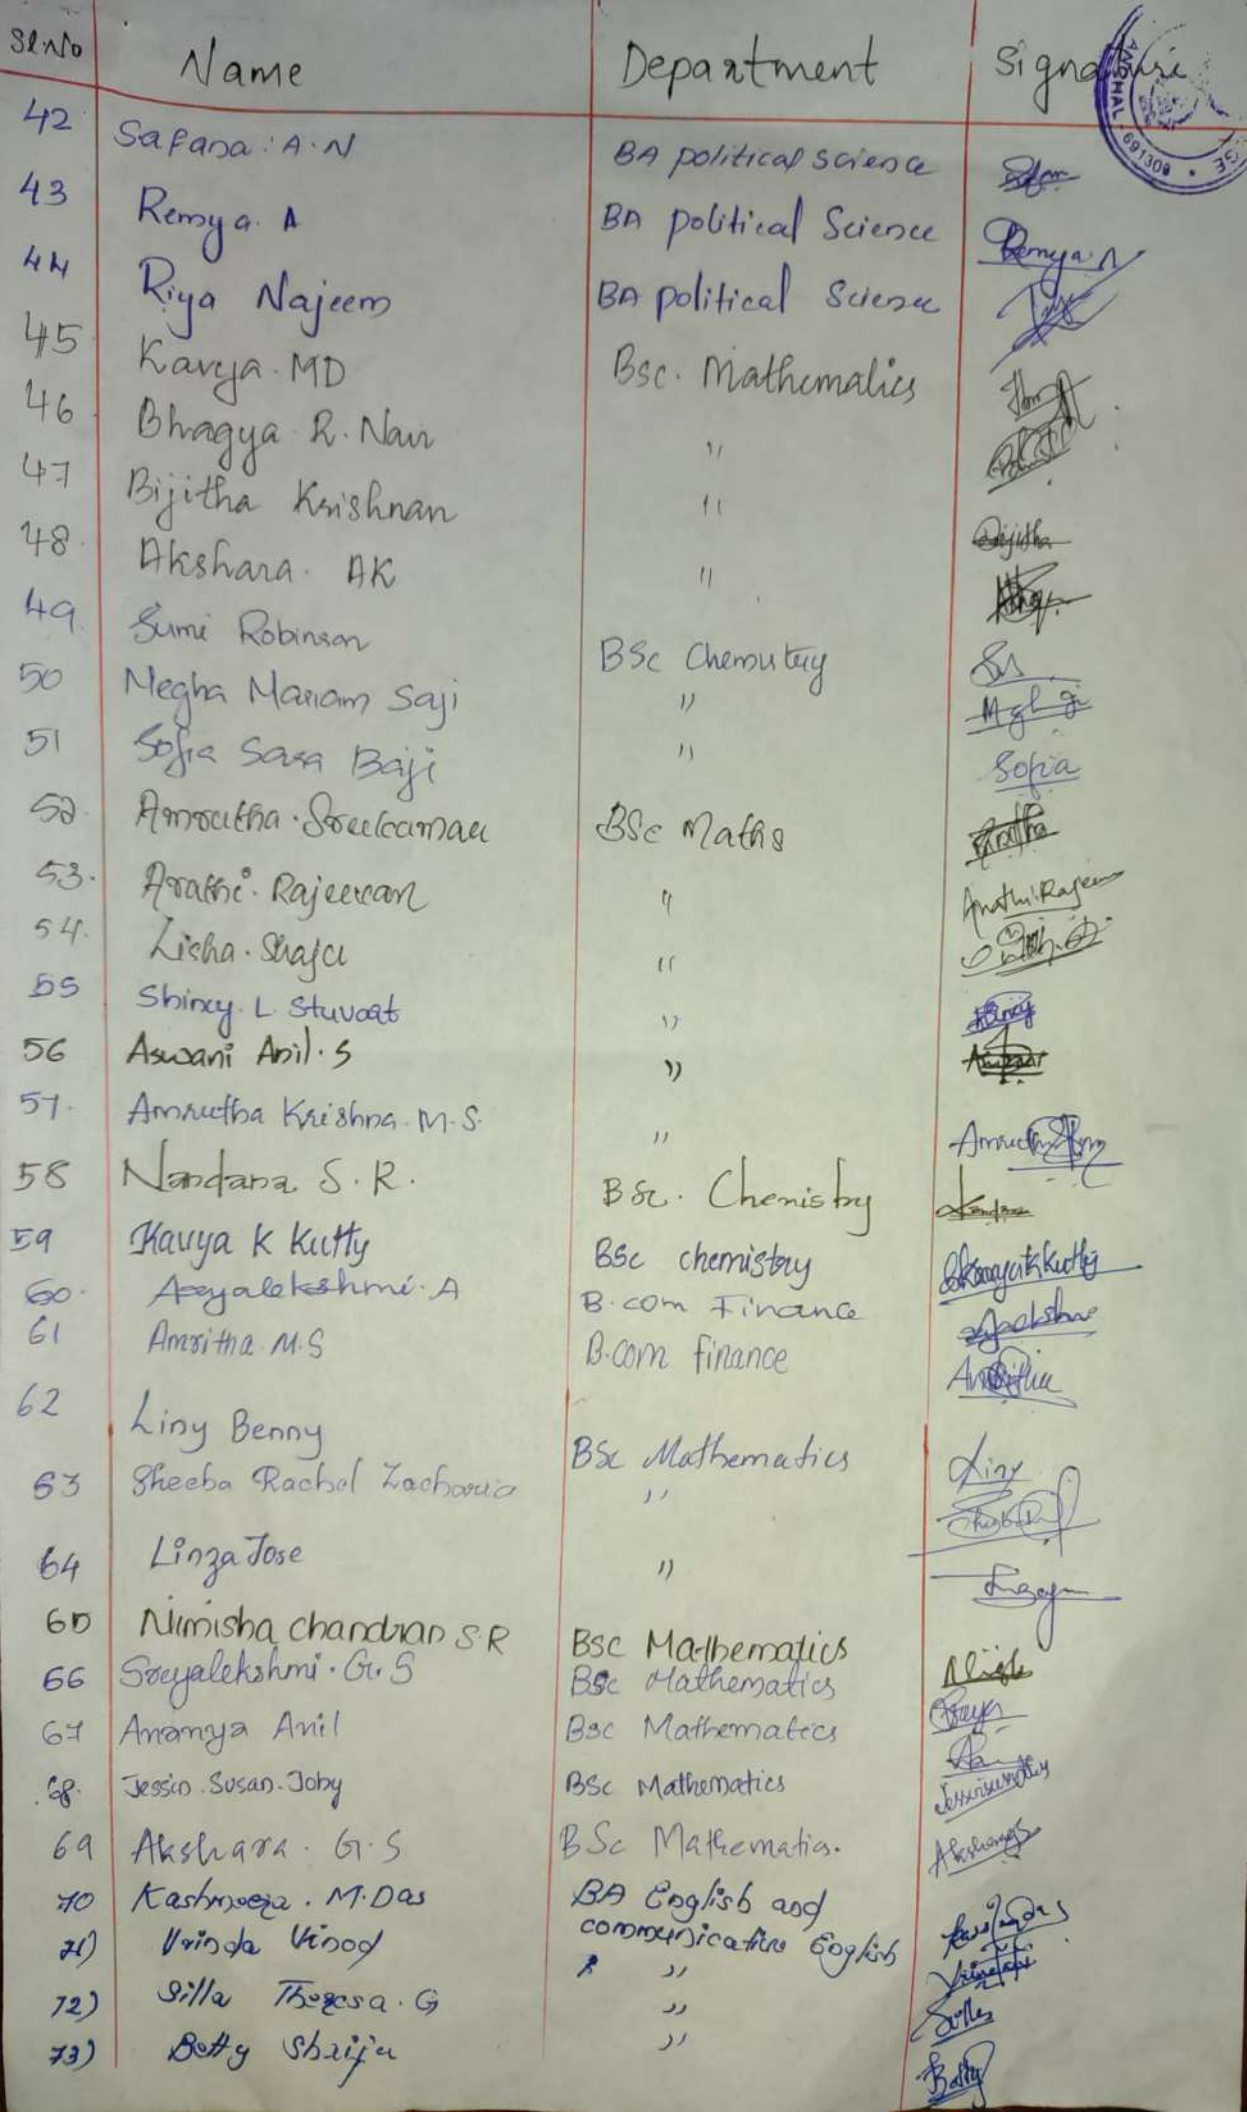 Sl.No Name Department Signature
42 Safana. A.N BA political science
43 Remya. A BA political Science Remya. A
44 Riya Najeem BA political Science
45 Kavya. MD Bsc. Mathematics
46 Bhagya R. Nair "
47 Bijitha Krishnan " Bijitha
48 Akshara. AK "
49 Sumi Robinson BSc Chemistry
50 Megha Mariam Saji "
51 Sofia Sara Baji " Sofia
52. Amrutha. Sreekumar BSc Maths
53. Arathi. Rajeevan "
54. Lisha. Shaju "
55 Shincy. L. Stuvart "
56 Aswani Anil. S "
57. Amrutha Krishna. M.S. "
58 Nandana S. R. BSc. Chemistry
59 Kavya K Kutty BSc chemistry Kavya K Kutty
60. A.B.com Finance
61 Amritha. M.S B.com finance
62 Liny Benny BSc Mathematics Liny
63 Sheeba Rachel Zacharia "
64 Linza Jose "
65 Nimisha chandran S.R BSC Mathematics
66 Sreyalekshmi. G. S BSc Mathematics
67 Ananya Anil BSC Mathematics
68. Jessin. Susan. Joby BSC Mathematics
69 Akshara. G.S BSc Mathematics.
70 Kashmeera. M. Das BA English and
communicative English
71) Vrinda Vinod "
72) Silla Theresa. G "
73) Betty Shaiju " Betty
691309